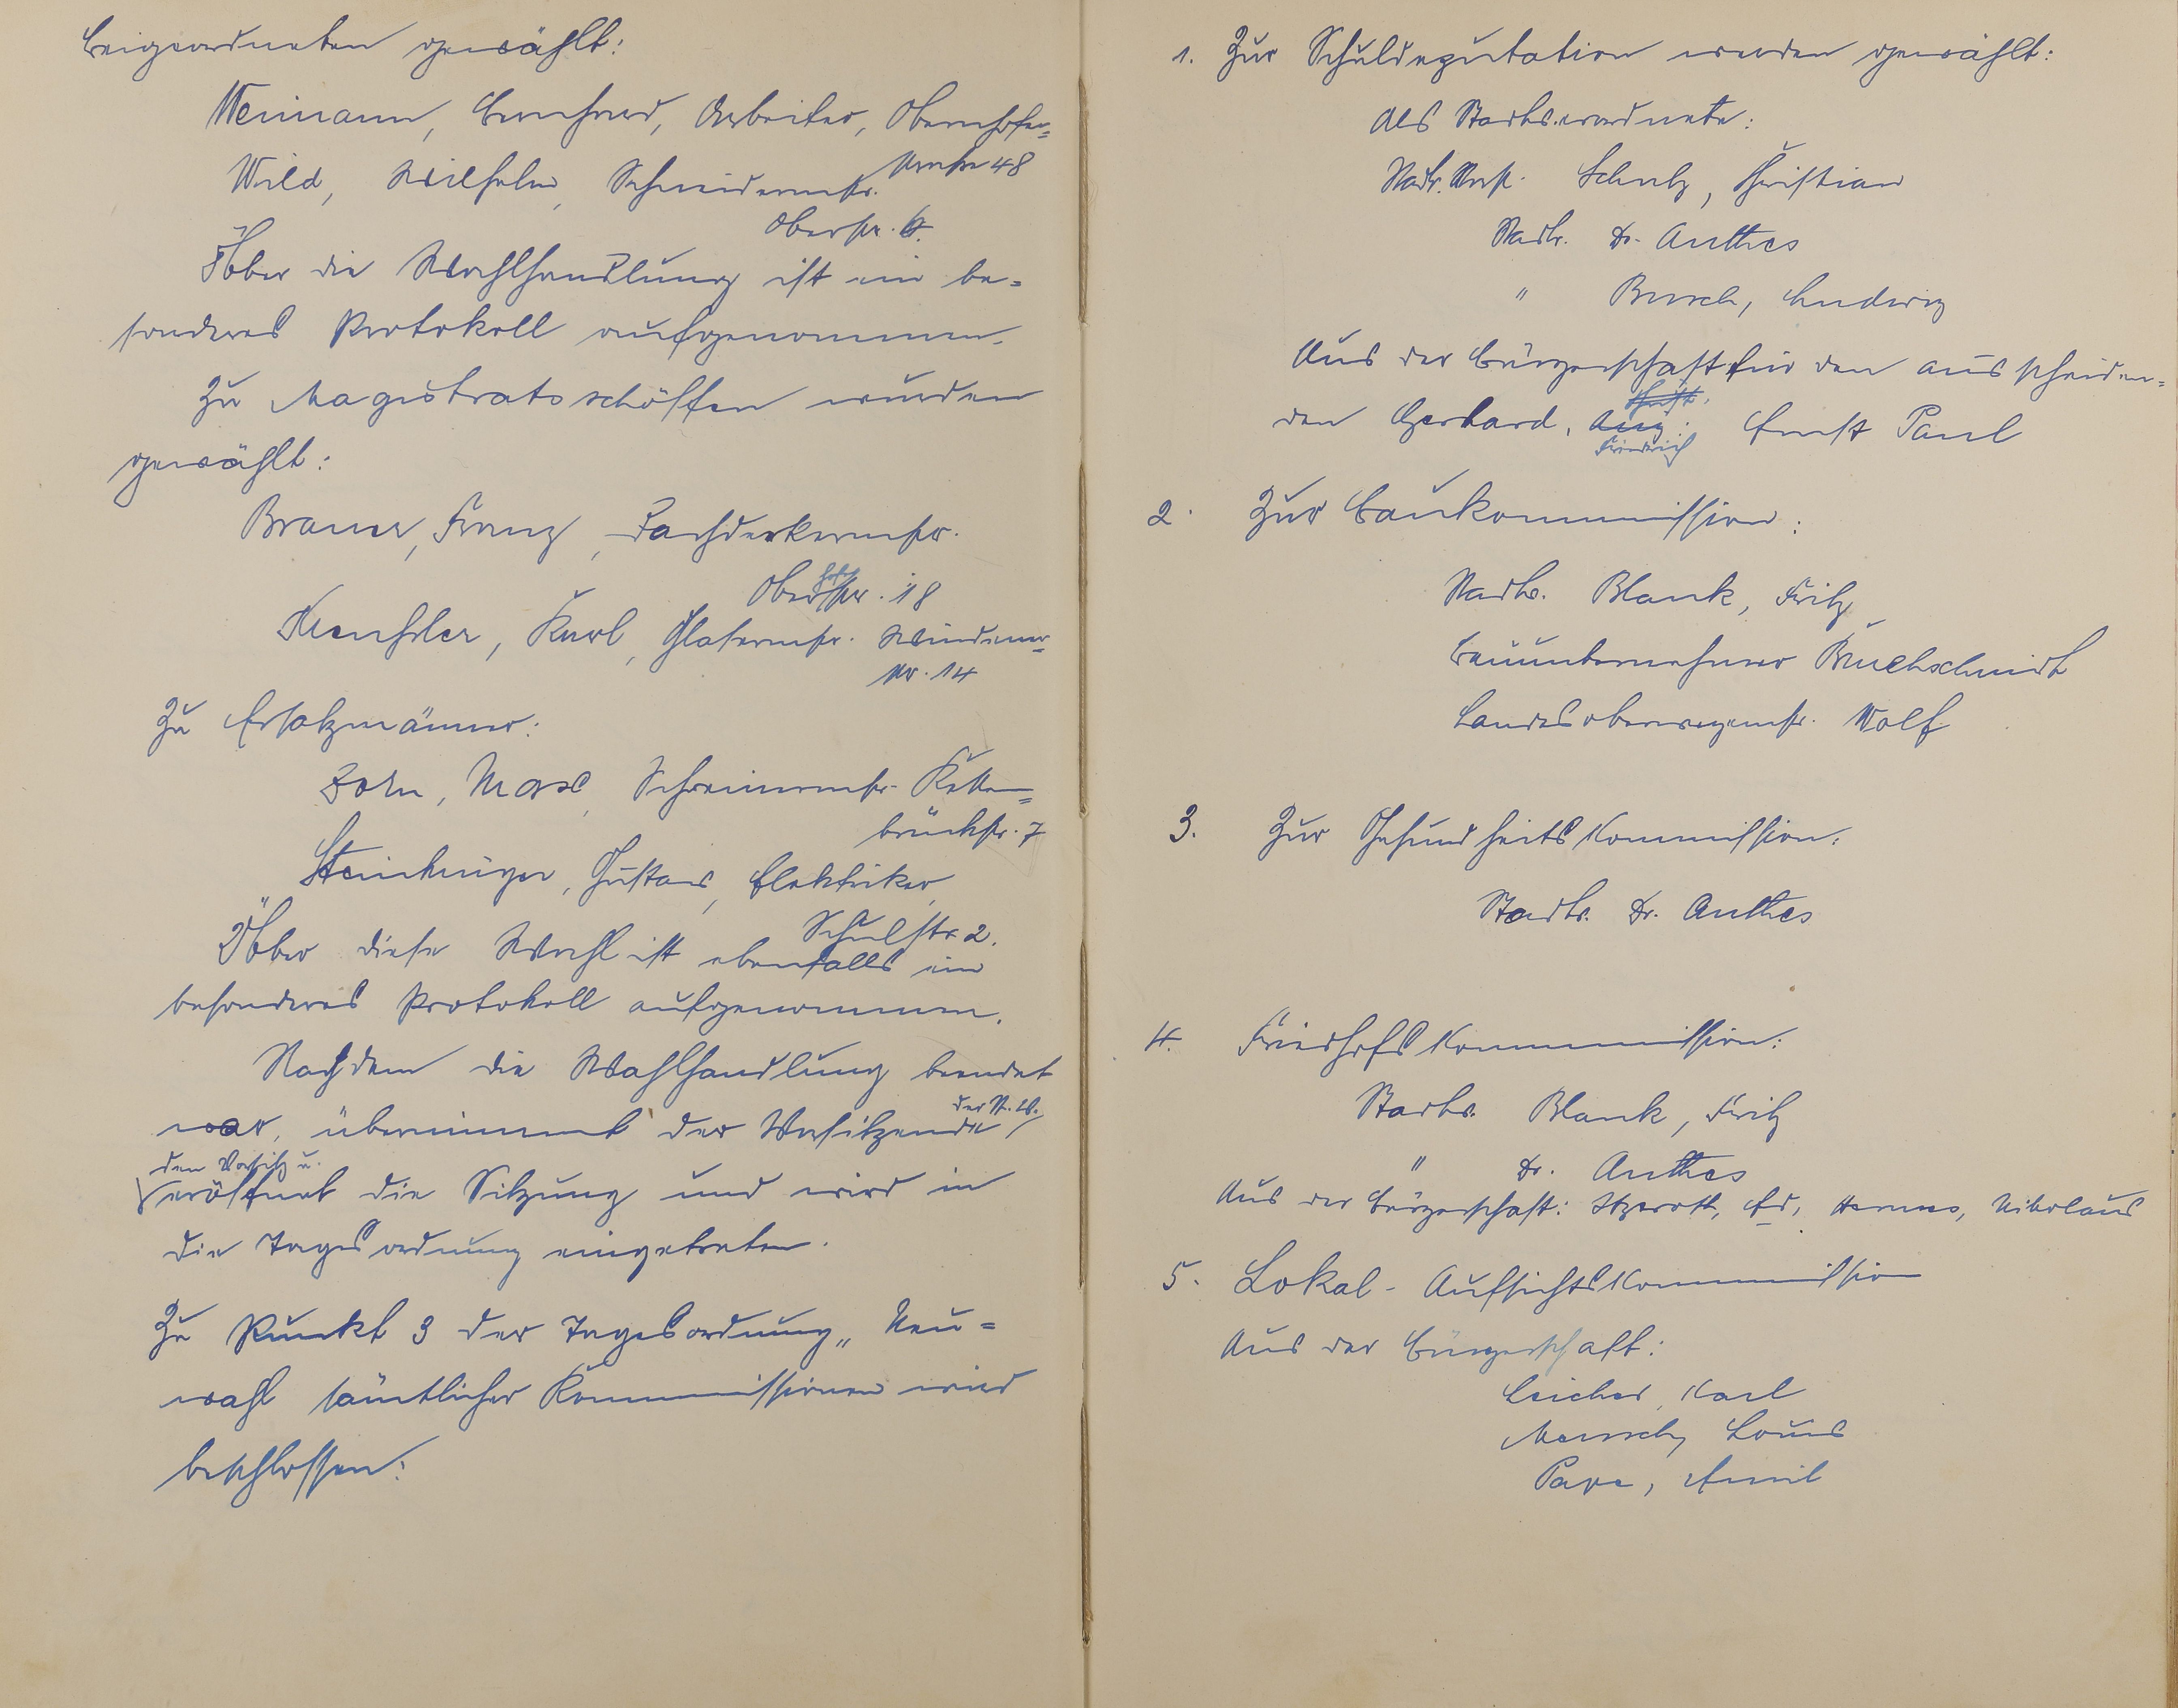 Beigeordneten gewählt:
Weimann, Bernhard, Arbeiter, Obernhofer=
strasse 48
Wild, Wilhelm, Schneidermstr.
Oberstr. 6.
Über die Wahlhandlung ist ein be=
sonderes Protokoll aufgenommen.
Zu Magistratsschöffen wurden
gewählt:
Bramer, Franz, Dachdeckermstr.
Oberhofstr. 18
Karl, Glasermstr. Windener
str. 14
Zu Ersatzmänner:
Zorn, Max, Schreinermstr. Ketten=
brückstr. 7
Steinhäuser, Gustav, Elektriker,
Schulstr. 2.
Über diese Wahl ist ebenfalls ein
besonderes Protokoll aufgenommen.
Nachdem die Wahlhandlung beendet
war, übernimmt der Vorsitzende der St. V.
den Vorsitz u.
eröffnet die Sitzung und wird in
die Tagesordnung eingetreten.
Zu Punkt 3 der Tagesordnung „Neu=
wahl sämtlicher Kommissionen wird
beschlossen:
1. Zur Schuldeputation wurden gewählt:
Als Stadtverordnete:
Schulz, Christian
Stadtv. Dr. Anthes
" Busch, Ludwig
Aus der Bürgerschaft für den ausscheiden=
den Gerhard, Aug. Friedrich Ernst Paul
2. Zur Baukommission:
Stadtv. Blank, Fritz
Bauunternehmer Buchschmidt
Landesoberwegemstr. Wolf
3. Zur Gesundheitskommission.
Stadtv. Dr. Anthes
4. Friedhofskommission:
Stadtv. Blank, Fritz
" Dr. Anthes
Aus der Bürgerschaft: Itzerott, Ed., Hermes, Nikolaus
5. Lokal-Aufsichtskommission
Aus der Bürgerschaft:
Leicher, Karl
Louis
Pape, Emil